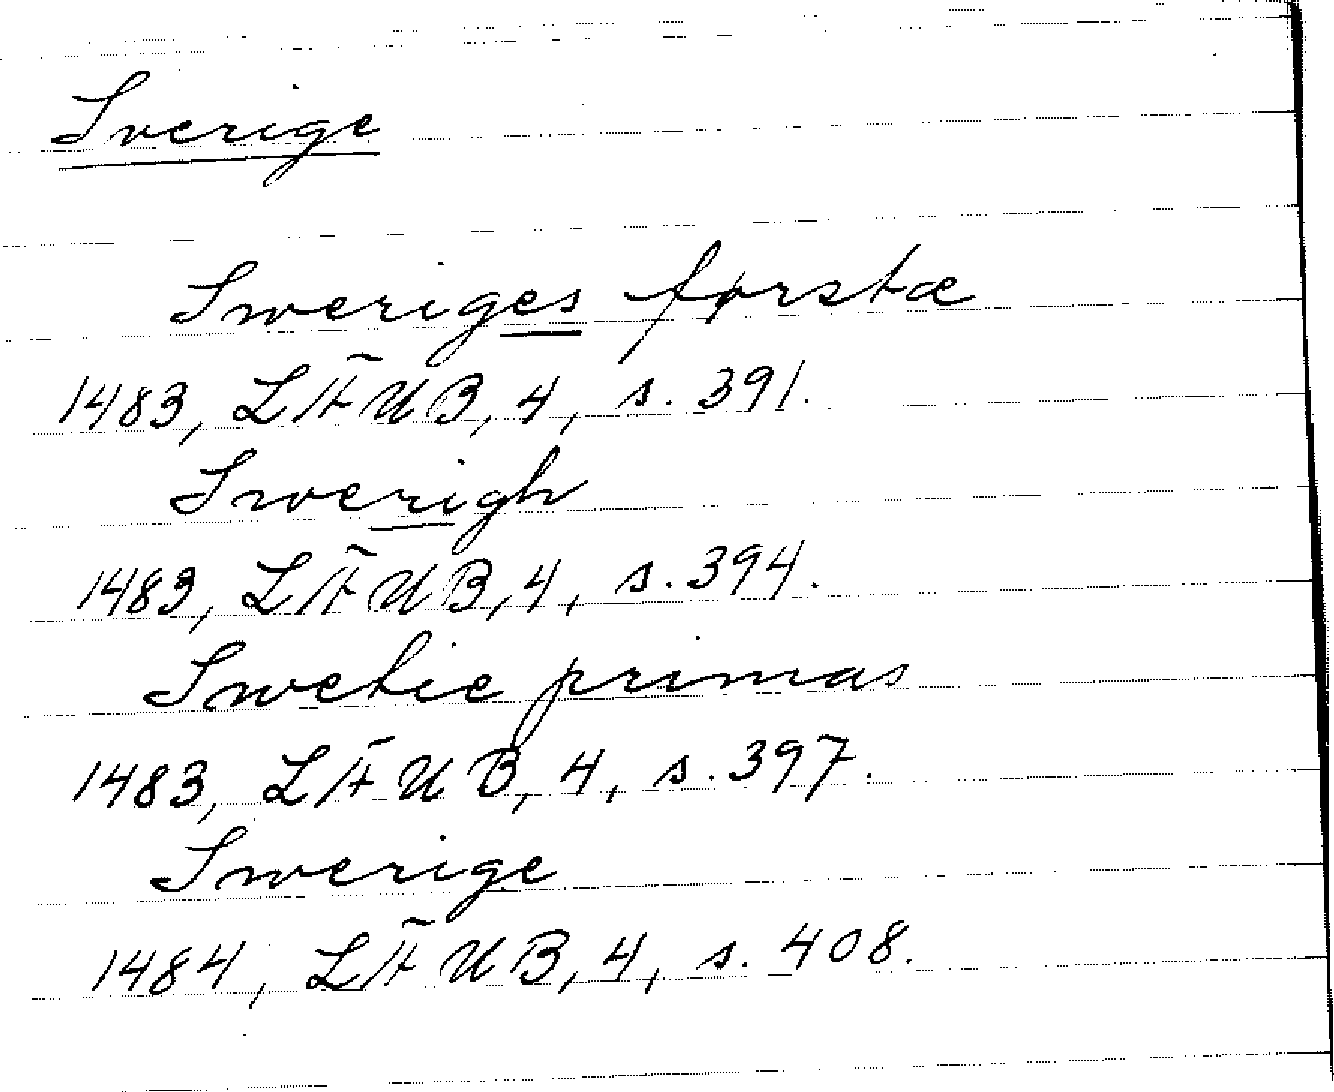 Sverige
Sweriges førstæ
1483, LÄUB, 4, s. 391.
Swerigh
1483, LÄUB, 4, s. 394.
Swetie primas
1483, LÄUB, 4, s. 397.
Swerige
1484, LÄUB, 4, s. 408.